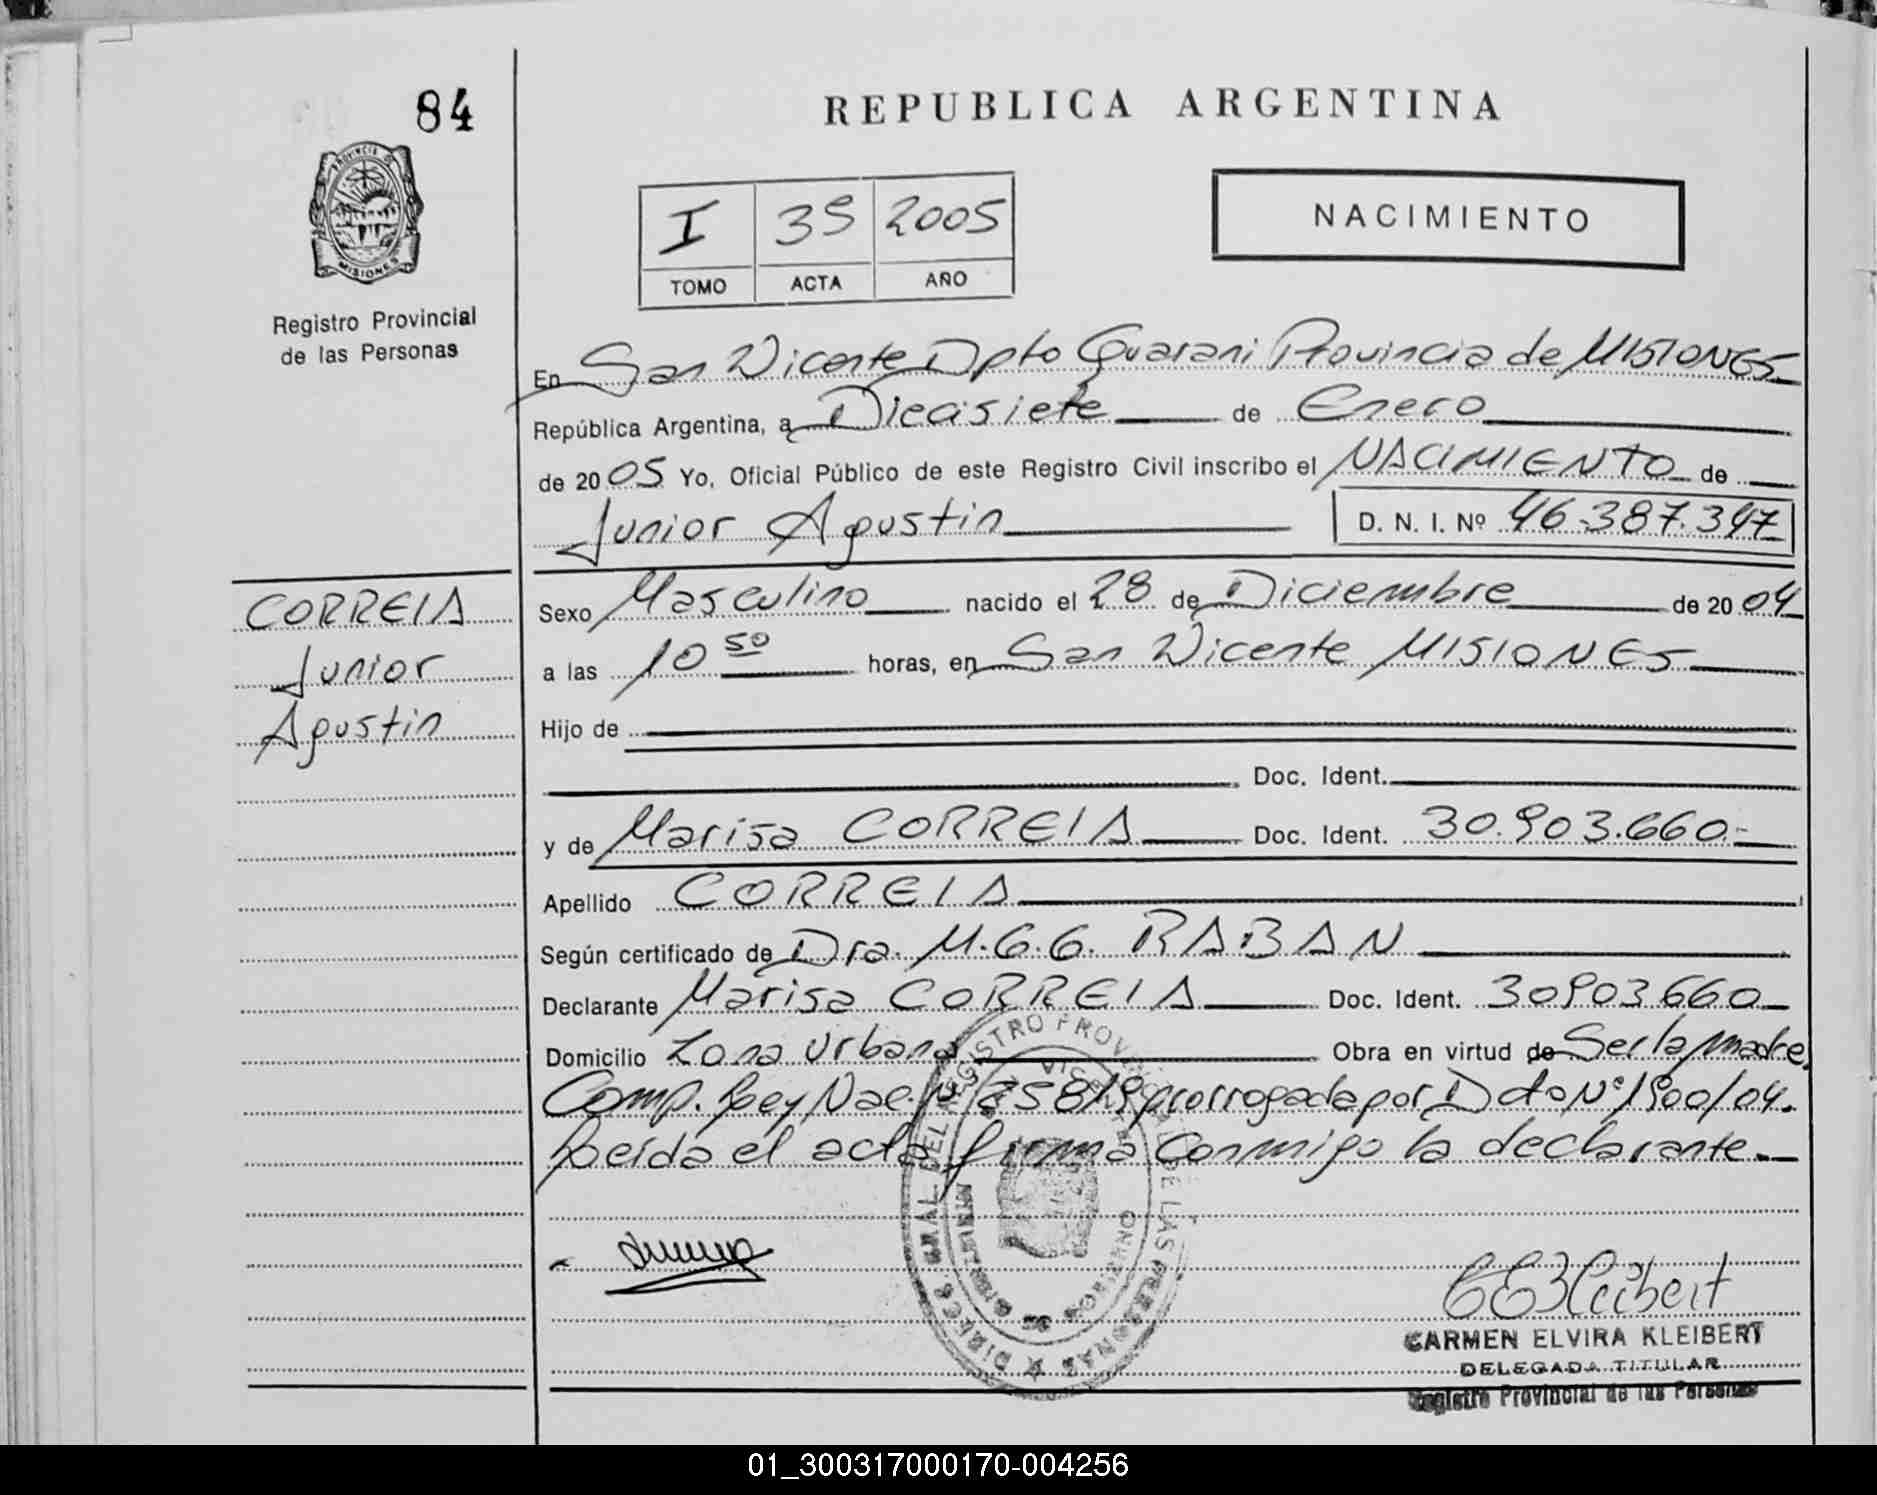 84
REPUBLICA ARGENTINA
PROVINCIA DE
MISIONES
Registro Provincial
de las Personas
I 39 2005
TOMO ACTA AÑO
NACIMIENTO
En San Vicente Dpto Guarani Provincia de MISIONES
República Argentina, a Diecisiete de Enero
de 2005 Yo, Oficial Público de este Registro Civil inscribo el NACIMIENTO de
Junior Agustin D. N. I. Nº 46.387.347
CORREIA
Junior
Agustin
Sexo Masculino nacido el 28 de Diciembre de 2004
a las 10 50 horas, en San Vicente MISIONES
Hijo de
Doc. Ident.
y de Marisa CORREIA Doc. Ident. 30.903.660.-
Apellido CORREIA
Según certificado de Dra. M.G.G. RABAN
Declarante Marisa CORREIA Doc. Ident. 30903660
Domicilio Zona Urbana Obra en virtud de Ser la madre.
Comp. Ley Nac. Nº 25819 prorrogada por Dcto Nº 1900/04.
Leída el acta firma conmigo la declarante.
DE LAS PERSONAS
CEKleibert
CARMEN ELVIRA KLEIBERT
DELEGADA TITULAR
Registro Provincial de las Personas
01_300317000170-004256